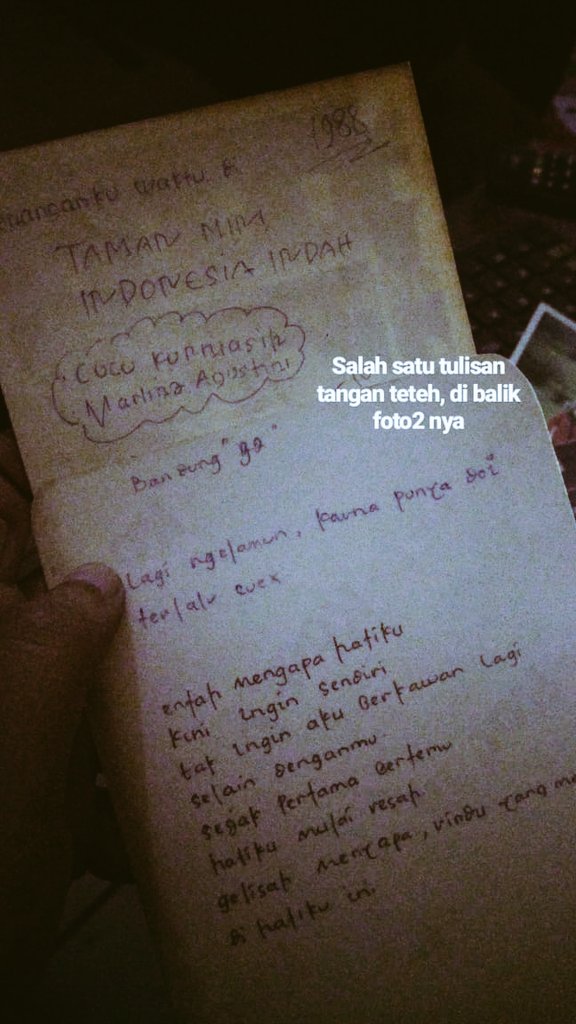 1988
kuancanku waktu di
TAMAN MINI
INDONESIA INDAH
Cucu Kurniasih
Marlina Agustini
Salah satu tulisan
tangan teteh, di balik
foto2 nya
Bandung "92"
Lagi ngelamun, karna punya doi
terlalu cuex
entah mengapa hatiku
kini ingin sendiri
tak ingin aku Berkawan Lagi
selain denganmu.
sejak pertama Bertemu
hatiku mulai resah
gelisah menyapa, rindu yang
di hatiku ini.